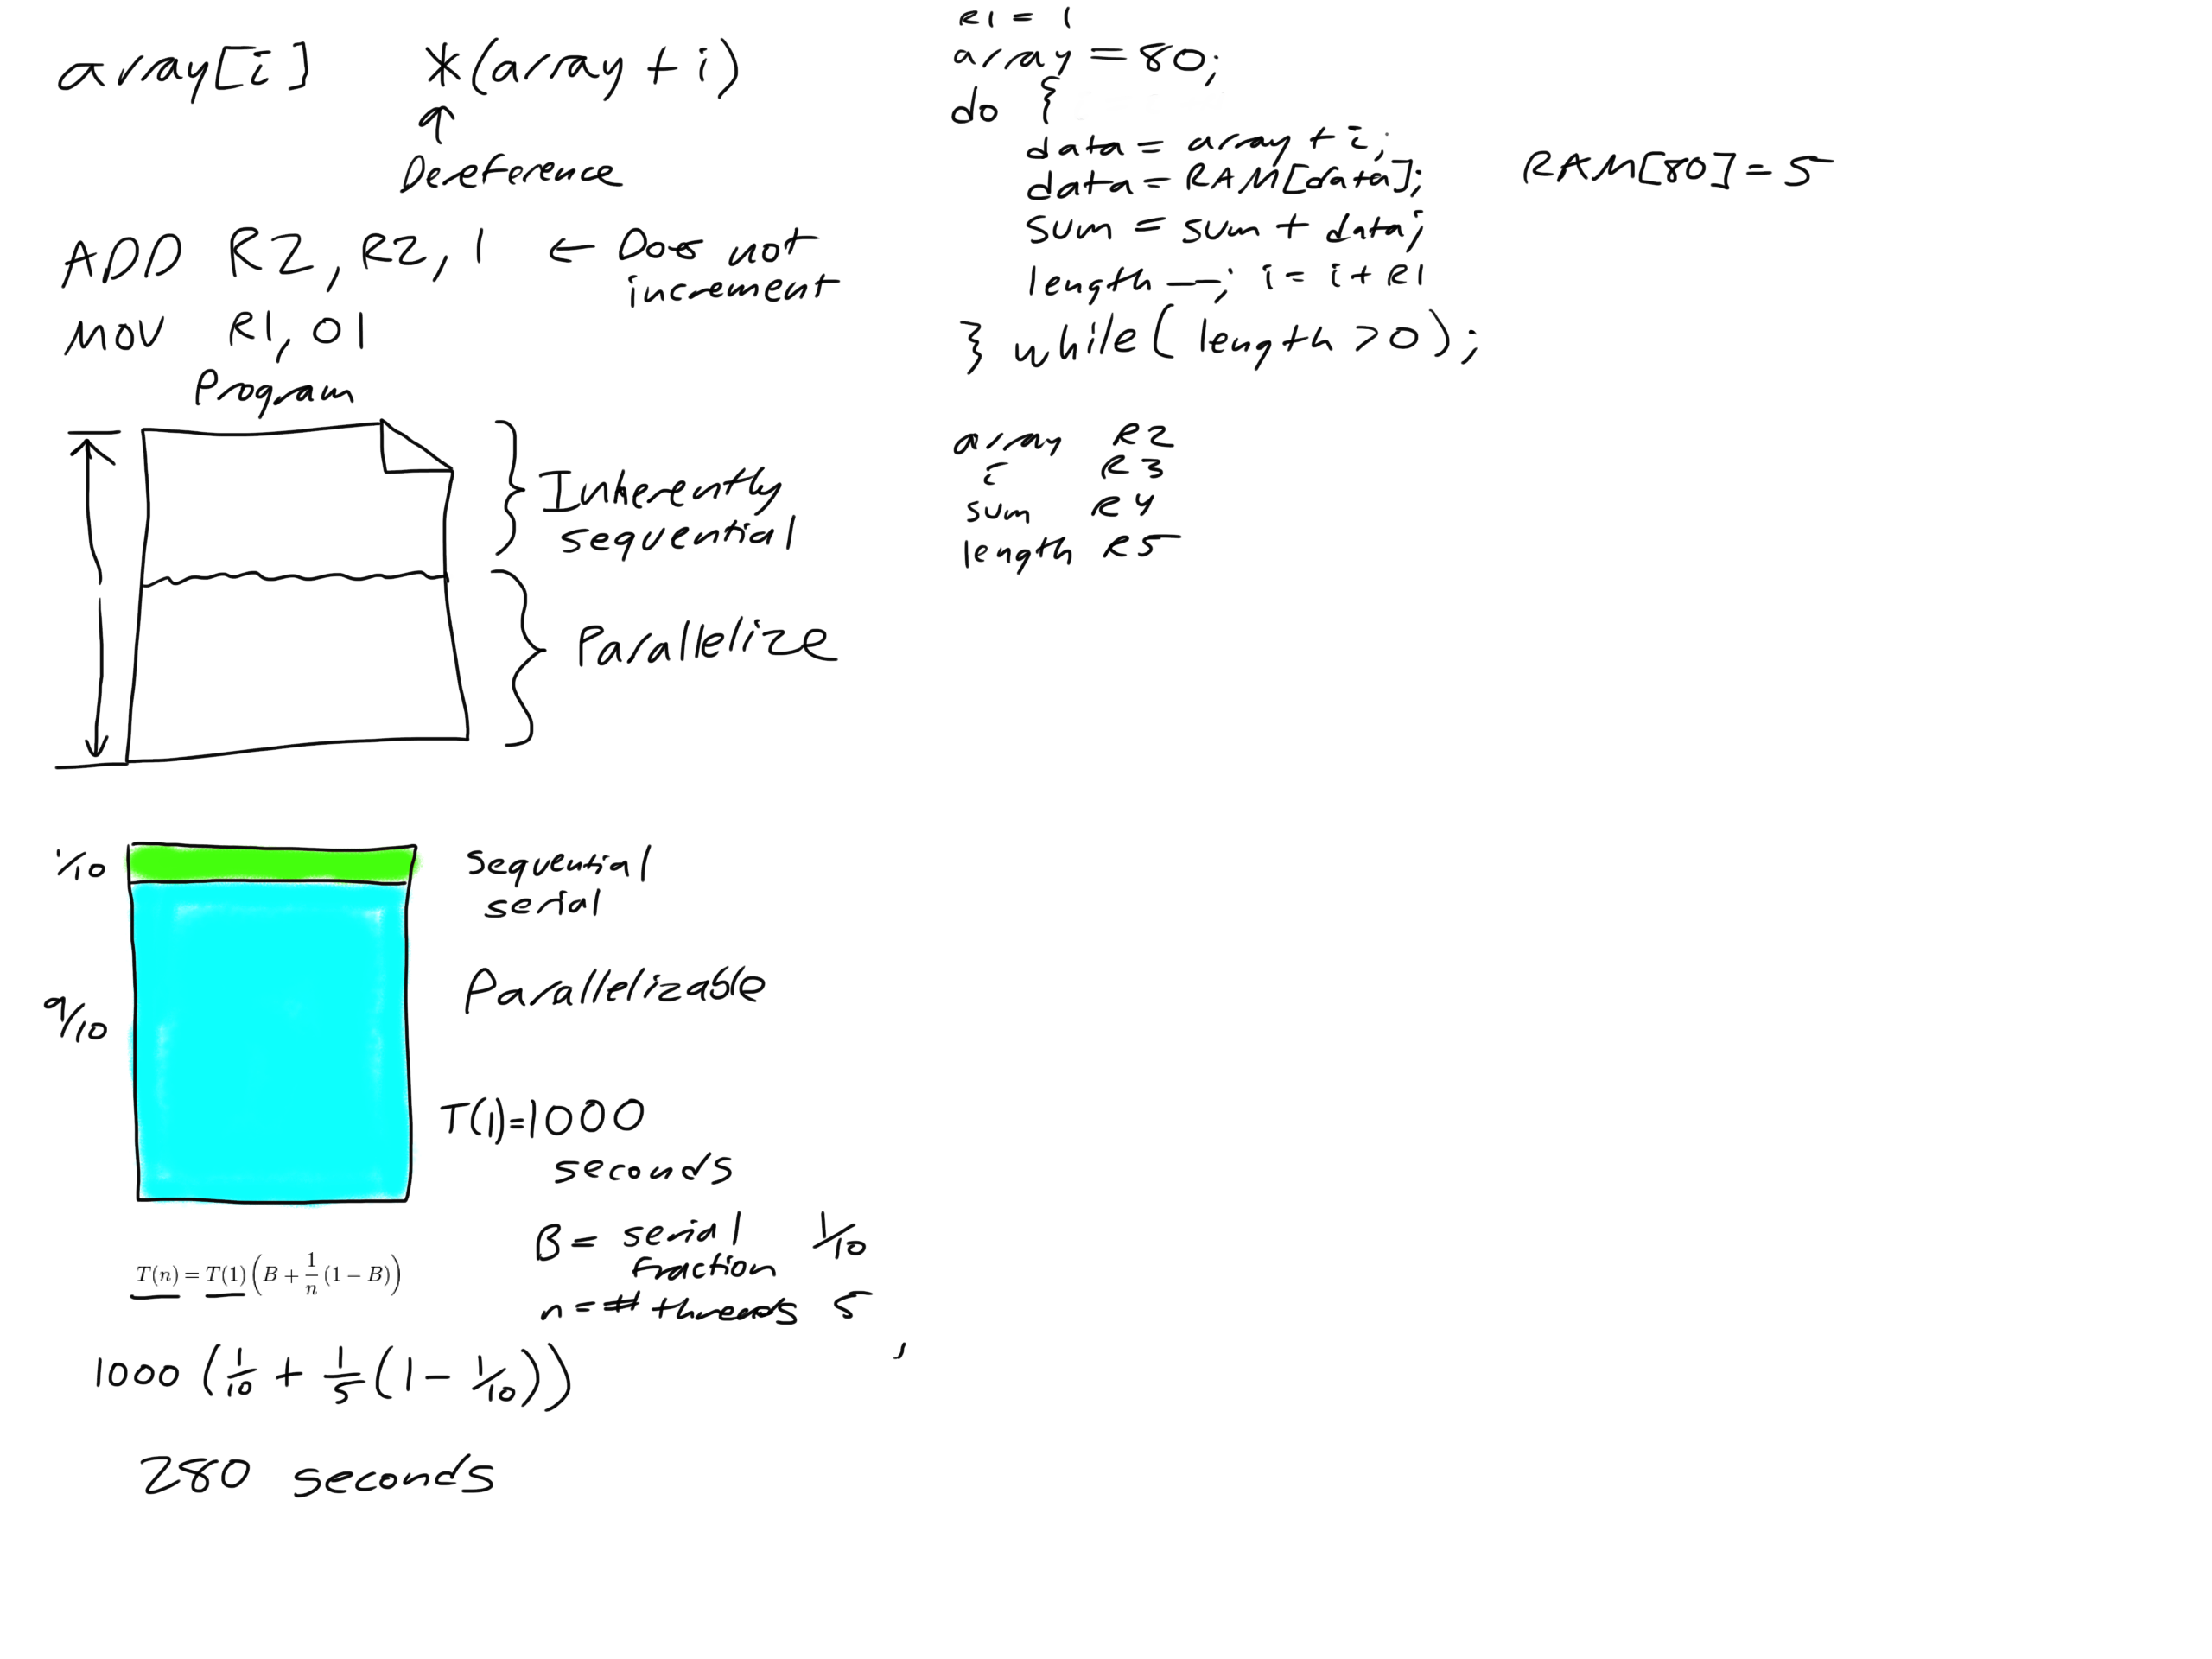 array[i] *(array + i)
↑
Dereference
ADD R2, R2, 1 ← Does not
increment
MOV R1, 01
Program
Inherently
sequential
Parallelize
1/10
sequential
serial
9/10
Parallelizable
T(1)=1000
seconds
B = serial 1/10
fraction
n = # threads 5
T(n) = T(1)(B + 1/n (1 − B))
1000 (1/10 + 1/5 (1 - 1/10))
280 seconds
R1 = 1
array = 80;
do {
data = array + i;
data = RAM[data];
sum = sum + data;
length --; i = i + R1
} while( length > 0 );
RAM[80] = 5
array R2
i R3
sum R4
length R5